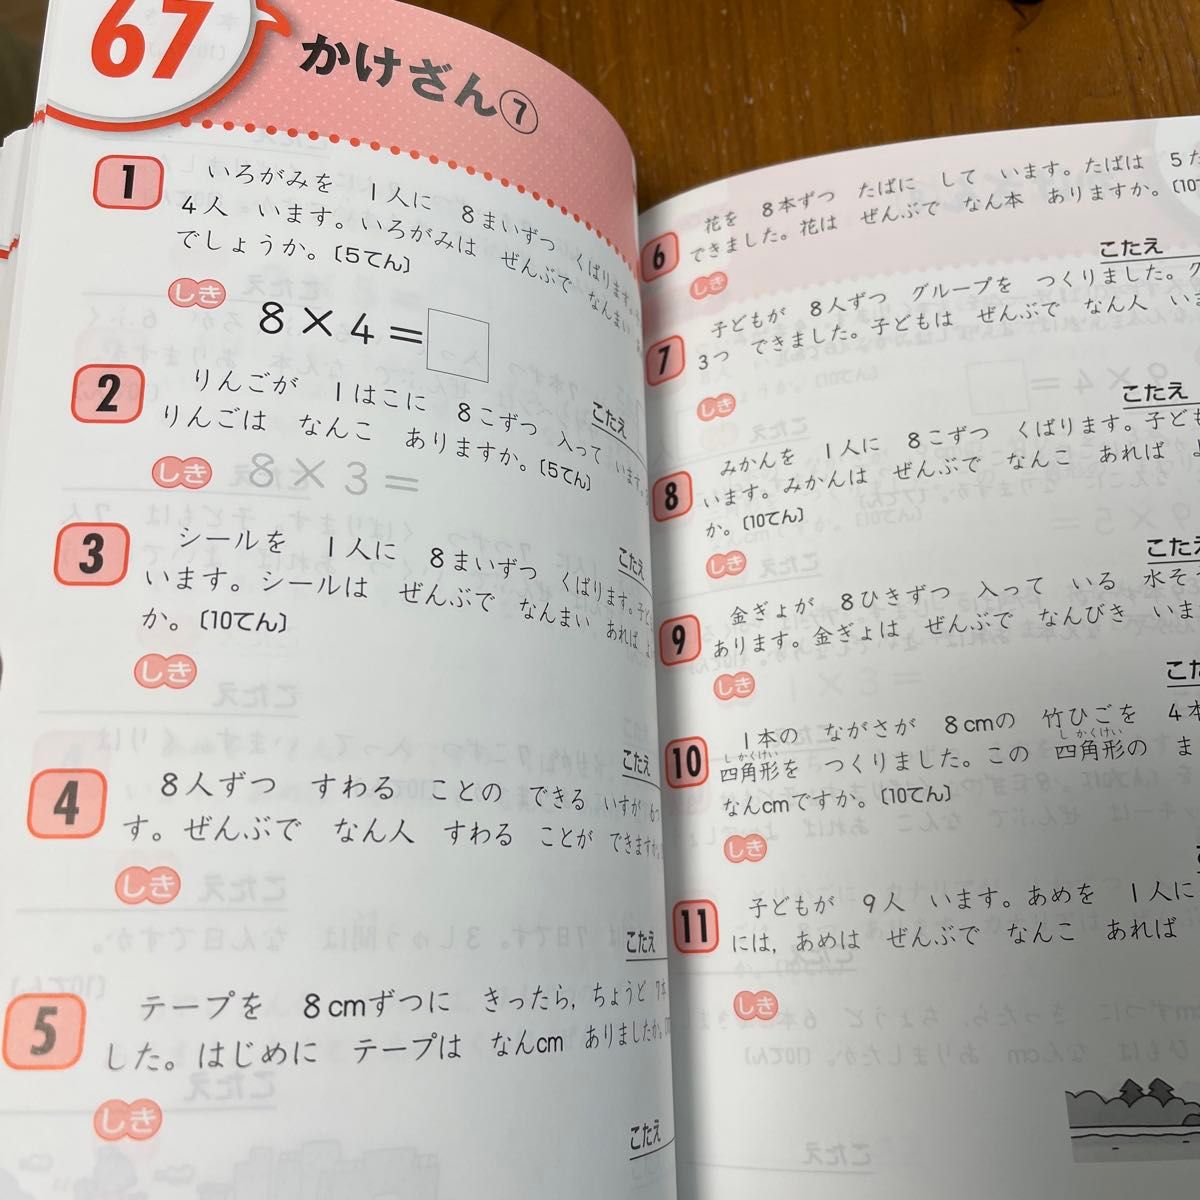 67
かけざん⑦
1 いろがみを 1人に 8まいずつ くばります。
4人 います。いろがみは ぜんぶで なんまい
でしょうか。〔5てん〕
しき
8×4=
こたえ
2 りんごが 1はこに 8こずつ 入って います。
りんごは なんこ ありますか。〔5てん〕
しき 8×3=
こたえ
3 シールを 1人に 8まいずつ くばります。子ど
います。シールは ぜんぶで なんまい あれば よ
か。〔10てん〕
しき
こたえ
4 8人ずつ すわる ことの できる いすが 6つ
す。ぜんぶで なん人 すわる ことが できますか。
しき
こたえ
5 テープを 8cmずつに きったら,ちょうど 7本
した。はじめに テープは なんcm ありましたか。
しき
こたえ
6 花を 8本ずつ たばに して います。たばは 5た
できました。花は ぜんぶで なん本 ありますか。〔10
しき
こたえ
7 子どもが 8人ずつ グループを つくりました。グ
3つ できました。子どもは ぜんぶで なん人 いま
しき
こたえ
8 みかんを 1人に 8こずつ くばります。子ども
います。みかんは ぜんぶで なんこ あれば よ
か。〔10てん〕
しき
こたえ
9 金ぎょが 8ひきずつ 入って いる 水そう
あります。金ぎょは ぜんぶで なんびき いま
しき
こた
10 1本の ながさが 8cmの 竹ひごを 4本
四角形を つくりました。この 四角形の ま
しかくけい しかくけい
なんcmですか。〔10てん〕
しき
こ
11 子どもが 9人 います。あめを 1人に
には,あめは ぜんぶで なんこ あれば
しき